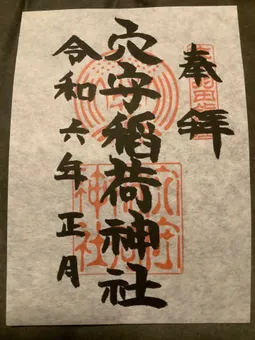 奉拝
穴守稲荷神社
令和六年正月